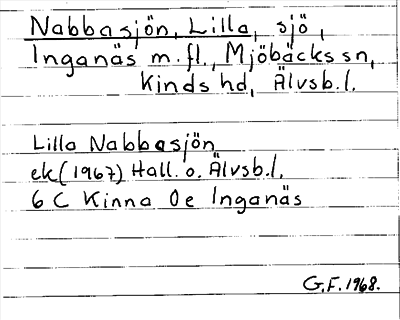 Nabbasjön, Lilla, sjö,
Inganäs m.fl., Mjöbäcks sn,
Kinds hd, Älvsb.l.
Lilla Nabbasjön
ek(1967) Hall. o. Älvsb.l.
6 C Kinna 0e Inganäs
G.F. 1968.